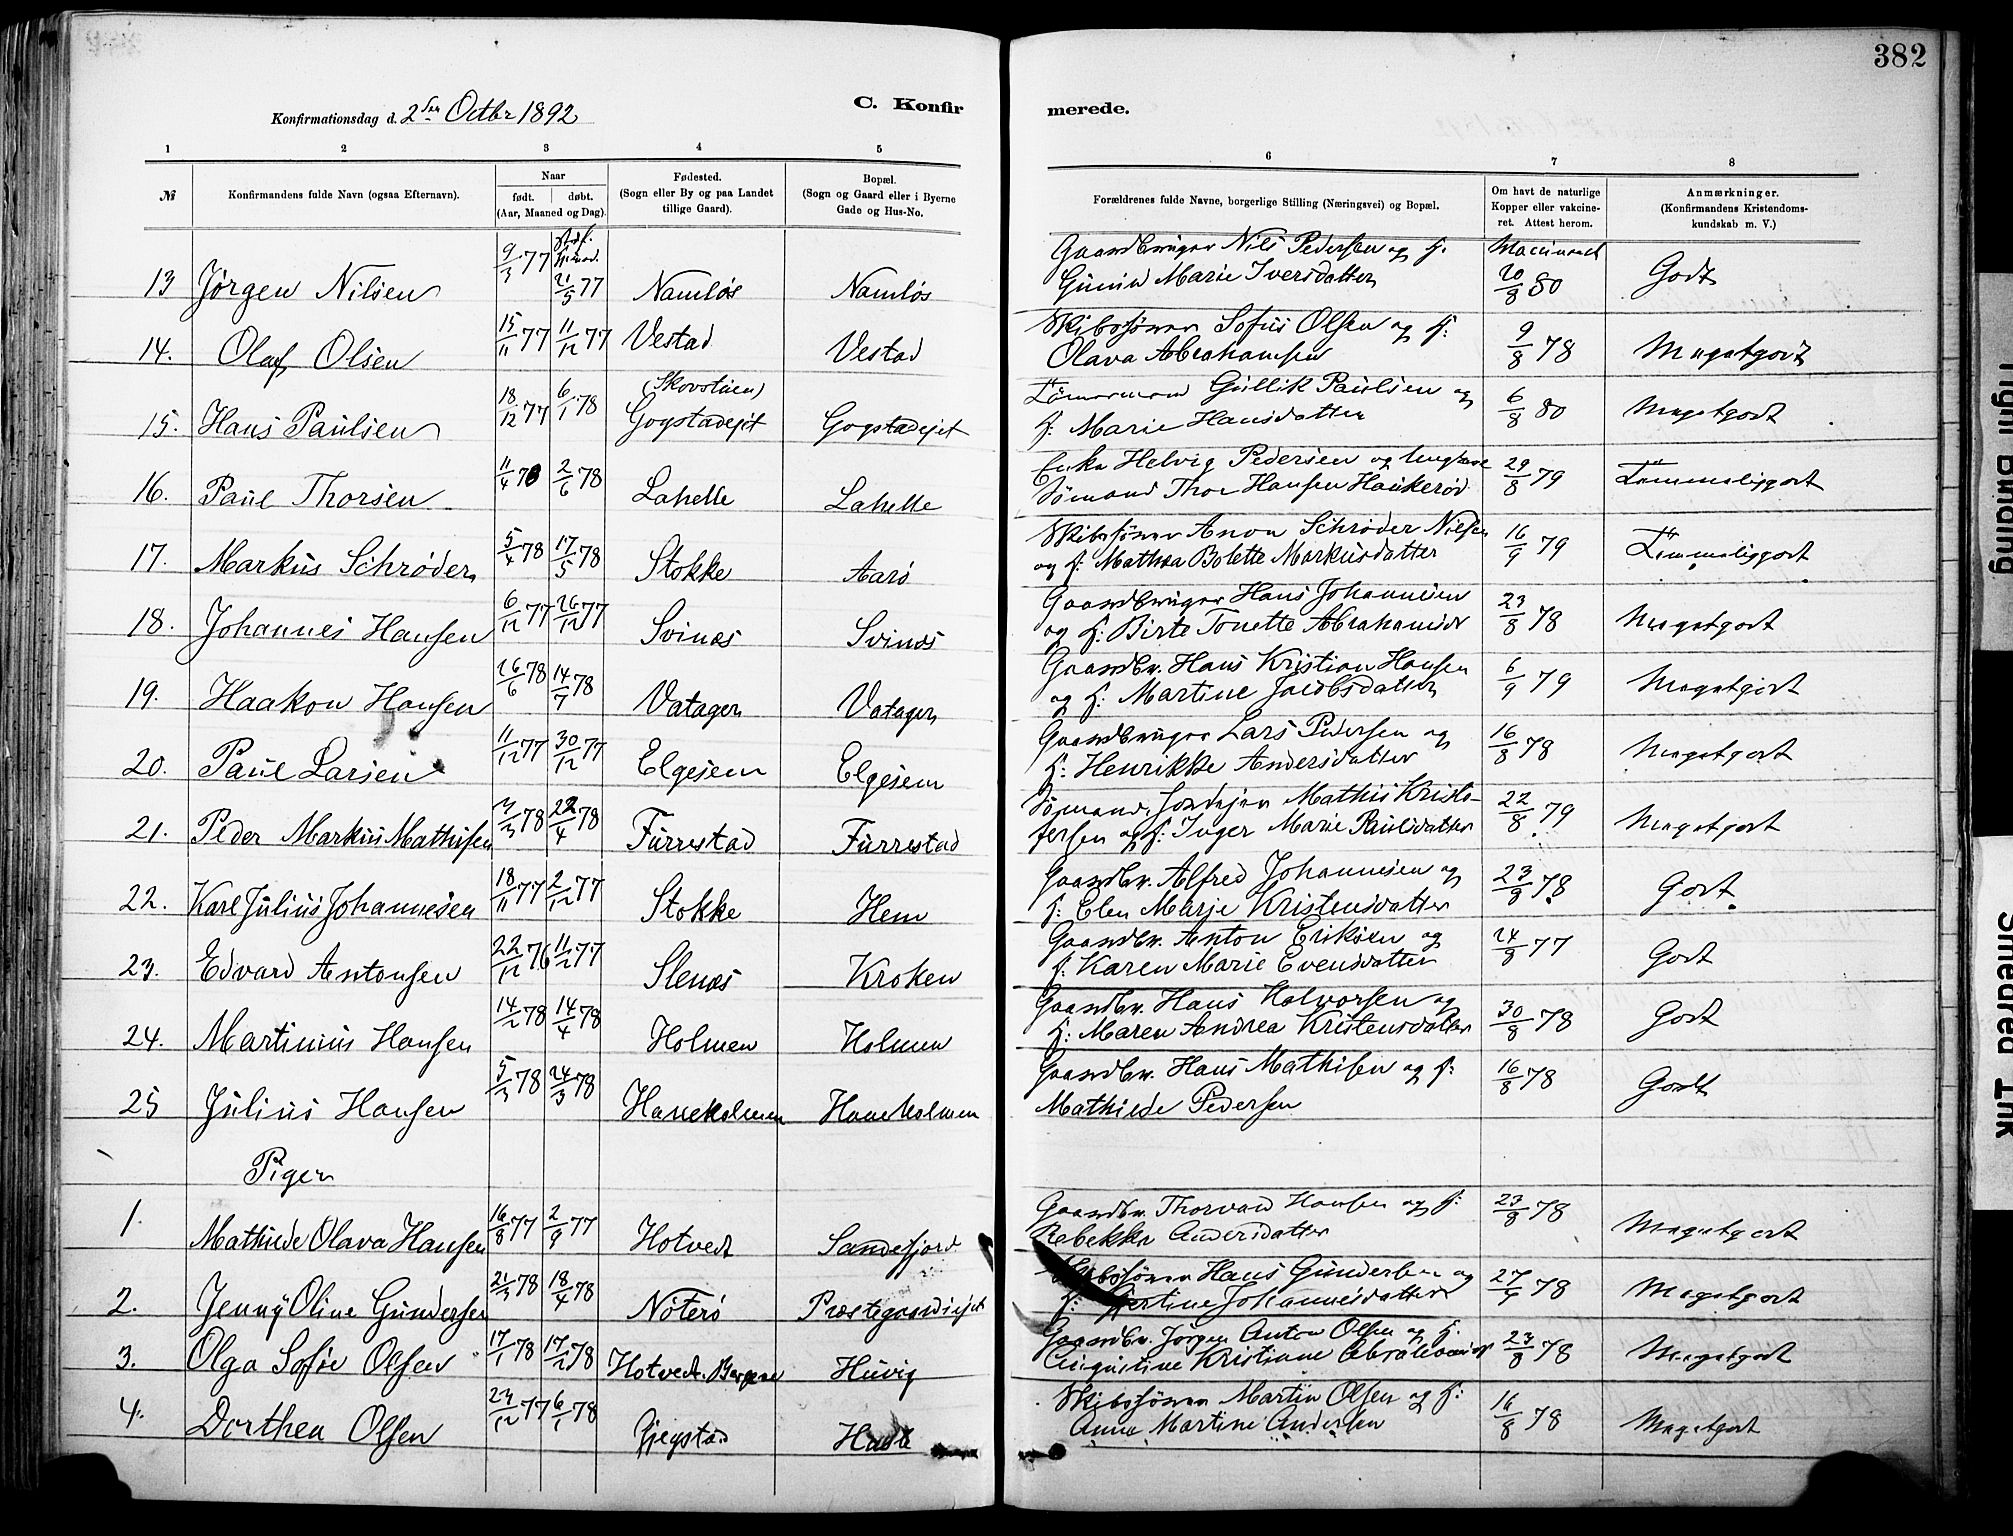 382
Konfirmationsdag d. 2den Octbr 1892
C. Konfirmerede.
1 2 3 4 5 6 7 8
№
Konfirmandens fulde Navn (ogsaa Efternavn).
Naar
født. døbt.
(Aar, Maaned og Dag).
Fødested.
(Sogn eller By og paa Landet
tillige Gaard).
Bopæl.
(Sogn og Gaard eller i Byerne
Gade og Hus-No.
Forældrenes fulde Navne, borgerlige Stilling (Næringsvei) og Bopæl.
Om havt de naturlige
Kopper eller vakcine-
ret. Attest herom.
Anmærkninger.
(Konfirmandens Kristendoms-
kundskab m. V.)
13 Jørgen Nilsen 9/3 77 21/5 77 Namløs Namløs Gaardbruger Nils Pedersen og H. Gunild Marie Iversdatter 20/8 80 Godt
14. Olaf Olsen 15/11 77 11/12 77 Vestad Vestad Skibstømrer Sofus Olsen og H: Olava Abrahamsen 9/8 78 Megetgodt
15. Hans Paulsen 18/12 77 6/1 78 (Skovstuen) Gogstadejet Gogstadejet Tømmermand Gullik Paulsen og H: Marie Hansdatter 6/8 80 Megetgodt
16. Paul Thorsen 11/4 78 2/6 78 Lahelle Lahelle Enke Helvig Pedersen og Ungkarl Sømand Thor Hansen Haukerød 29/8 79 Temmeliggodt
17. Markus Schrøder 5/4 78 17/5 78 Stokke Aarø Skibstømrer Anon Schrøder Nilsen og H: Mathea Bolette Markusdatter 16/9 79 Temmeliggodt
18. Johannes Hansen 6/12 77 26/12 77 Svinæs Svinæs Gaardbruger Hans Johannesen og H: Birte Tonette Abrahamsdr 23/8 78 Megetgodt
19. Haakon Hansen 26/6 78 14/7 78 Vatager Vatager Gaardbr. Hans Kristian Hansen og H: Martine Jacobsdatter 6/9 79 Megetgodt
20. Paul Larsen 11/12 77 30/12 77 Elgesem Elgesem Gaardbruger Lars Pedersen og H: Henrikke Andersdatter 16/8 78 Megetgodt
21. Peder Markus Mathisen 3/3 78 22/4 78 Furrestad Furrestad Sømand, Jordejer Mathis Kristofersen og H: Inger Marie Paulsdatter 22/8 79 Megetgodt
22. Karl Julius Johannesen 18/11 77 2/12 77 Stokke Hem Gaardbr. Alfred Johannesen og H: Elen Marje Kristensdatter 23/8 78 Godt
23. Edvard Antonsen 22/12 76 11/2 77 Slenæs Kroken Gaardbr. Anton Eriksen og H: Karen Marie Evensdatter 24/8 77 Godt
24. Martinius Hansen 14/2 78 14/4 78 Holmen Holmen Gaardbr. Hans Halvorsen og H: Maren Andrea Kristensdatter 30/8 78 Godt
25 Julius Hansen 5/3 78 24/3 78 Haneholmen Haneholmen Gaardbr. Hans Mathisen og H: Mathilde Pedersen 16/8 78 Godt
Piger
1. Mathilde Olava Hansen 16/8 77 2/9 77 Hotvedt Sandefjord Gaardbr. Thorvald Hansen og H: Rebekka Andersdatter 23/8 78 Megetgodt
2. Jenny Oline Gundersen 21/3 78 18/4 78 Nøterø Præstegaardsejet Skibstømrer Hans Gundersen og H: Johannesdatter 27/9 78 Megetgodt
3. Olga Sofie Olsen 17/1 78 17/2 78 Hotvedt Huvig Gaardbr. Jørgen Anton Olsen og H. Augustine Kristiane Abrahamsdr 23/8 78 Megetgodt
4. Dorthea Olsen 23/12 77 6/1 78 Gjegstad Skibstømrer Martin Olsen og H: Anne Martine Andersen 16/8 78 Megetgodt